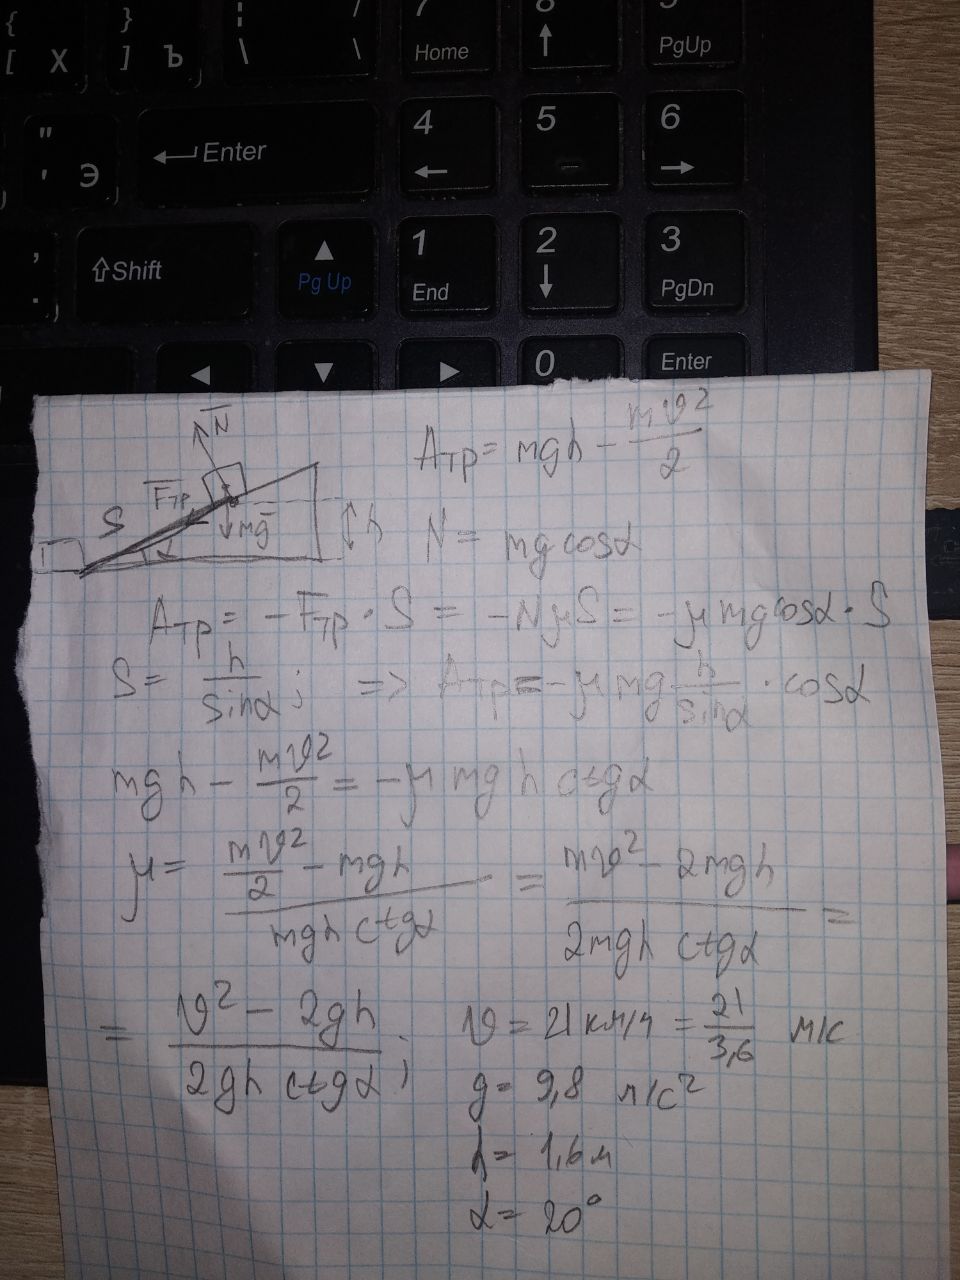 { } ¦ / 7 8 9
[ Х ] Ъ \ \ Home ↑ PgUp
" 4 5 6
' Э ↵ Enter ← - →
, ▲ 1 2 3
. ⇧Shift Pg Up End ↓ PgDn
◄ ▼ ► 0 Enter
N
Aтр = mgh - mv²/2
Fтр
S mg h
N = mg cosα
α
Aтр = -Fтр · S = -NμS = -μmg cosα · S
S = h/sinα ; => Aтр = -μmg h/sinα · cosα
mgh - mv²/2 = -μ mgh ctgα
μ = (mv²/2 - mgh)/(mgh ctgα) = (mv² - 2mgh)/(2mgh ctgα) =
= (v² - 2gh)/(2gh ctgα) ; v = 21 км/ч = 21/3,6 м/с
g = 9,8 м/с²
h = 1,6 м
α = 20°